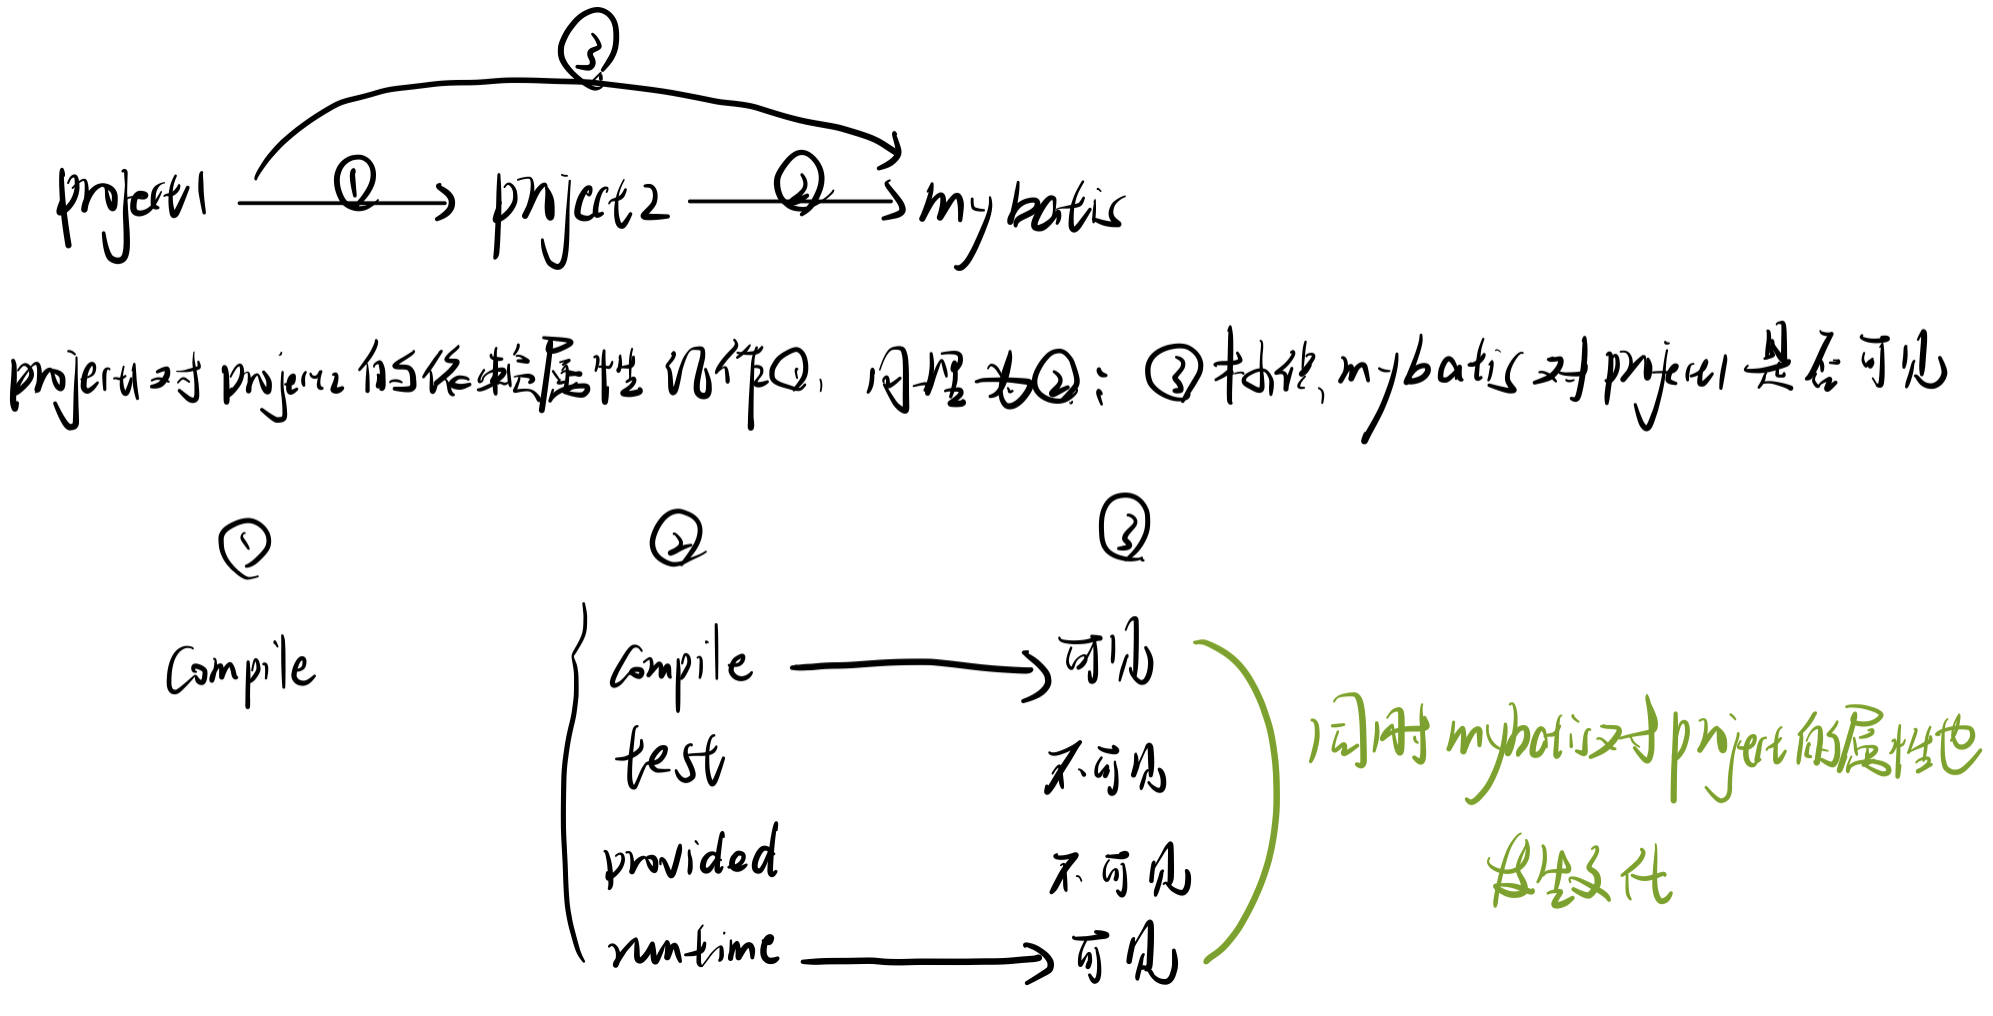 ③
project1 ① project2 ② mybatis
project1对project2的依赖属性记作①，同理为②；③指代mybatis对project1是否可见
① ② ③
compile compile 可见
test 不可见
provided 不可见
runtime 可见
同时mybatis对project的属性也
发生变化